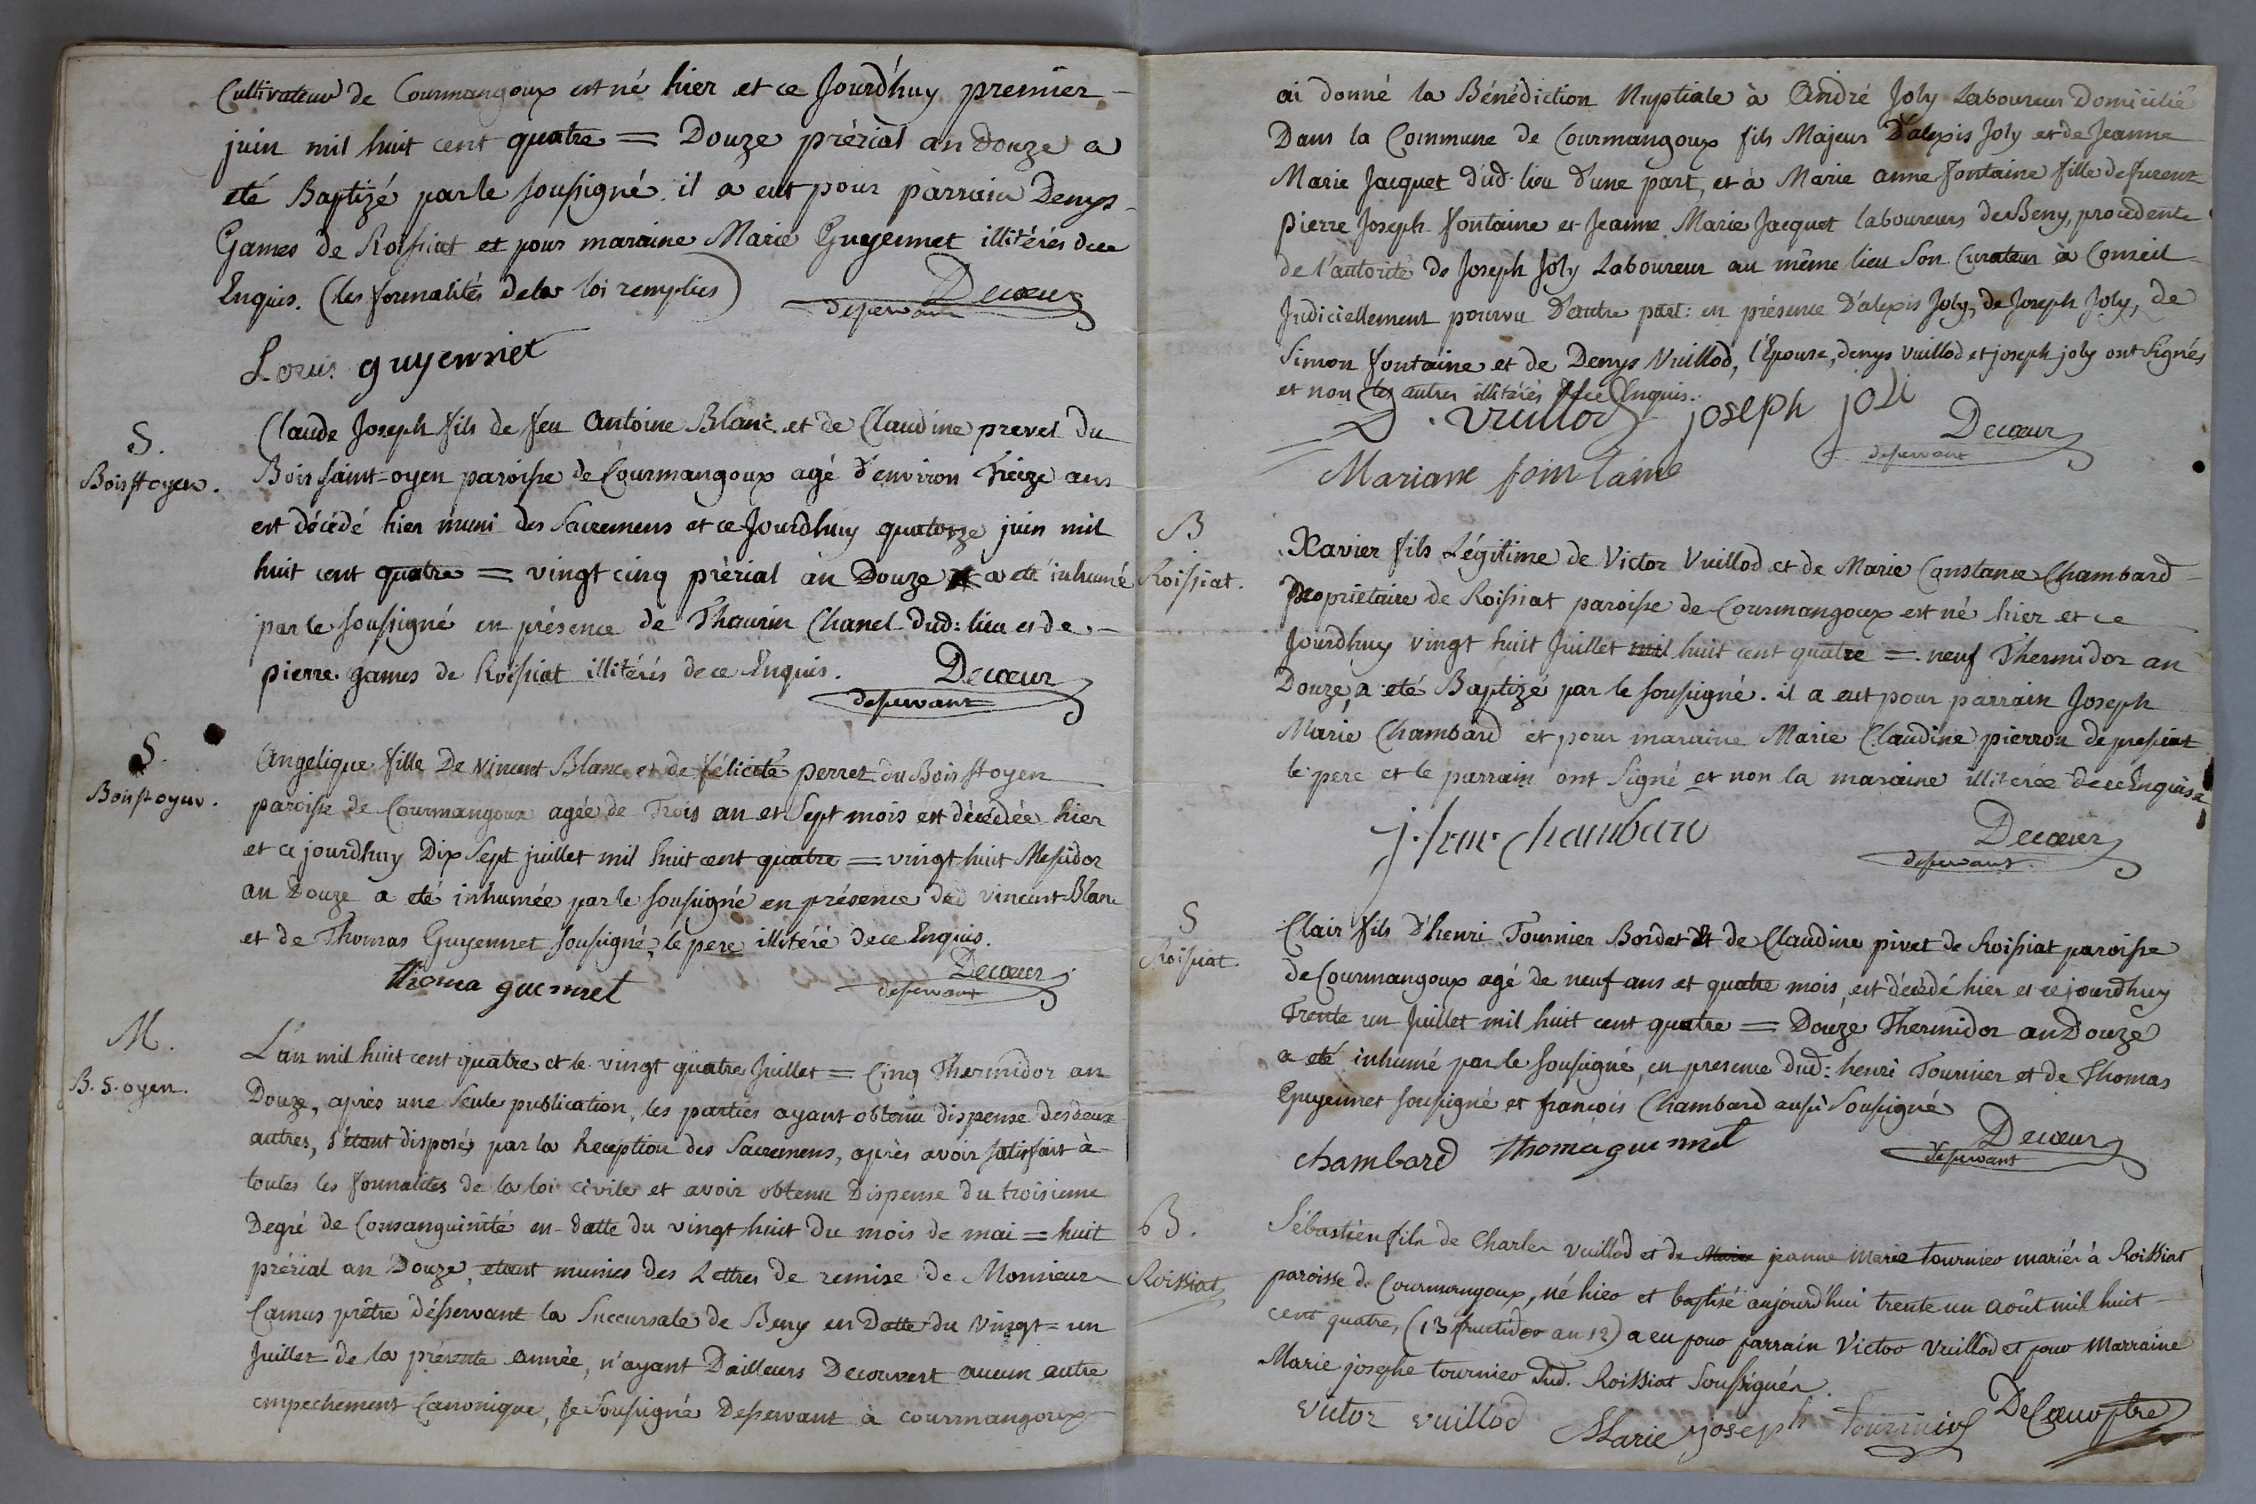 Cultivateur de Courmangoux est né hier et ce Jourd'huy premier
juin mil huit cent quatre = Douze prérial an Douze a
eté Baptizé par le soussigné. il a eut pour parrain Denys
Games de Roissiat et pour maraine Marie Guyennet illitérés de ce
Enquis. (les formalités de la loi remplies)
Decœur
desservant
Louis guyennet
S.
Bois st oyen.
Claude Joseph fils de feu Antoine Blanc et de Claudine prevel du
Bois saint-oyen paroisse de Courmangoux agé d'environ Treize ans
est décédé hier muni des Sacremens et ce Jourdhuy quatorze juin mil
huit cent quatre = vingt cinq prérial an Douze a eté inhumé
par le soussigné en présence de Thaurin Chanel dud: lieu et de
pierre games de Roissiat illitérés de ce Enquis.
Decœur
desservant
S.
Bois st oyen.
Angelique fille De Vincent Blanc et de félicité perret du Bois st oyen
paroisse de Courmangoux agée de Trois an et Sept mois est décédée hier
et ce jourdhuy Dix Sept juillet mil huit cent quatre = vingt huit Messidor
an Douze a eté inhumée par le soussigné en présence de vincent Blanc
et de Thomas Guyennet soussigné, le pere illitéré de ce Enquis.
thoma guennet
Decœur
desservant
M.
B. S. oyen.
L'an mil huit cent quatre et le vingt quatre Juillet = Cinq Thermidor an
Douze, après une seule publication, les parties ayant obtenu dispense des deux
autres, s'étant disposés par la Reception des Sacremens, après avoir satisfait à
toutes les formalités de la loi civile et avoir obtenu Dispense du troisieme
Degré de Consanguinité en datte du vingt huit du mois de mai = huit
prérial an Douze, etant munies des Lettres de remise de Monsieur
Camus prêtre désservant la Succursale de Beny en Datte du Vingt = un
Juillet de la présente année, n'ayant Dailleurs Decouvert aucun autre
empechement Canonique, Je Soussigné Desservant à courmangoux
ai donné la Bénédiction Nuptiale à André Joly Laboureur Domicilié
Dans la Commune de Courmangoux fils Majeur D'alexis Joly et de Jeanne
Marie Jacquet dud. lieu d'une part, et à Marie anne fontaine fille de furent
Pierre Joseph fontaine et Jeanne Marie Jacquet laboureurs de Beny, procédente
de l'autorité de Joseph Joly Laboureur au même lieu Son Curateur à Conseil
Judiciellement pourvu D'autre part: en présence D'alexis Joly, de Joseph Joly, de
Simon fontaine et de Denys Vuillod, l'Epouse, denys vuillod et joseph joly ont Signés
et non les autres illitérés de ce Enquis.
D. Vuillod joseph joli
Decœur
desservant
Mariane fointaine
B
Roissiat.
Xavier fils Légitime de Victor Vuillod et de Marie Constance Chambard
Propriétaire de Roissiat paroisse de Courmangoux est né hier et ce
Jourdhuy vingt huit Juillet mil huit cent quatre = neuf Thermidor an
Douze, a eté Baptizé par le soussigné. il a eut pour parrain Joseph
Marie Chambard et pour maraine Marie Claudine pierron de pressiat
le pere et le parrain ont Signé et non la maraine illiterée de ce Enquise
chambard
Decœur
desservant
S
Roissiat
Clair fils d'henri Tournier Bordet et de Claudine pivet de Roissiat paroisse
de Courmangoux agé de neuf ans et quatre mois, est décédé hier et ce jourdhuy
Trente un Juillet mil huit cent quatre = Douze Thermidor an Douze
a eté inhumé par le soussigné, en presence dud: henri Tournier et de Thomas
Guyennet soussigné et francois Chambard aussi Soussigné
chambard thoma guennet
Decœur
desservant
B.
Roissiat
Sébastien fils de Charles vuillod et de Marie jeanne Marie tournier mariés à Roissiat
paroisse de Courmangoux, né hier et baptisé aujourd'hui trente un août mil huit
cent quatre, (13 fructidor an 12) a eu pour parrain Victor Vuillod et pour Marraine
Marie josephe tournier dud. Roissiat Soussignés.
victor vuillod Marie joseph tournier DeCœur ptre